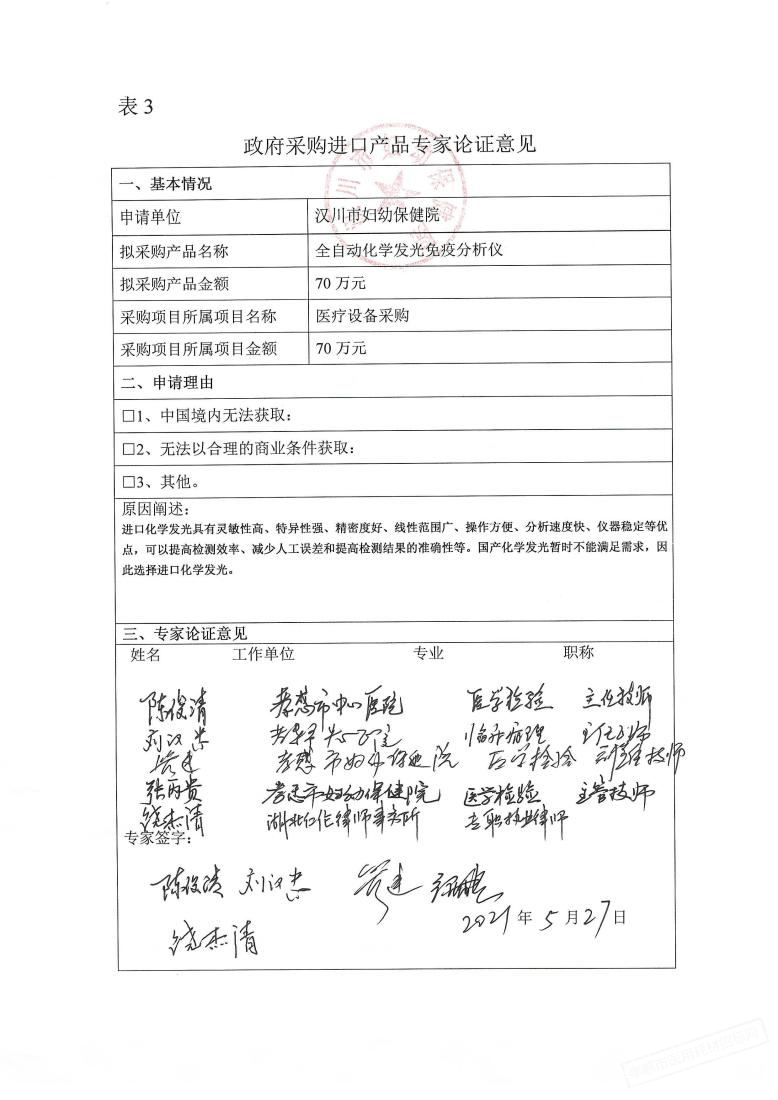 表 3
政府采购进口产品专家论证意见
一、基本情况
申请单位 汉川市妇幼保健院
拟采购产品名称 全自动化学发光免疫分析仪
拟采购产品金额 70 万元
采购项目所属项目名称 医疗设备采购
采购项目所属项目金额 70 万元
二、申请理由
□1、中国境内无法获取：
□2、无法以合理的商业条件获取：
□3、其他。
原因阐述：
进口化学发光具有灵敏性高、特异性强、精密度好、线性范围广、操作方便、分析速度快、仪器稳定等优
点，可以提高检测效率、减少人工误差和提高检测结果的准确性等。国产化学发光暂时不能满足需求，因
此选择进口化学发光。
三、专家论证意见
姓名 工作单位 专业 职称
陈俊清 孝感市中心医院 医学检验 主任技师
刘汉忠 临床病理 主任医师
孝感市妇幼保健院 医学检验 技师
孝感市妇幼保健院 医学检验 主管技师
饶杰清 律师事务所 专职执业律师
专家签字：
陈俊清 刘汉忠
2021 年 5 月 27 日
饶杰清